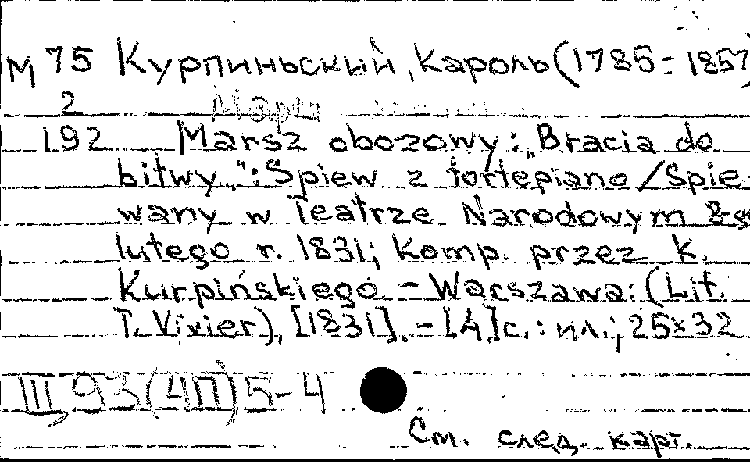 М 75 Курпиньский, Кароль (1785-1857)
2 Марш
192 Marsz obozowy: „Bracia do
bitwy...": Spiew z fortepiano / Spie-
wany w Teatrze Narodowym
lutego r. 1831; Komp. przez K.
Kurpińskiego. - Warszawa: (Lit.
T. Vivier), [1831]. - [4] c.: ил.; 25x32
III, 93(4П)5-4
См. след. карт.